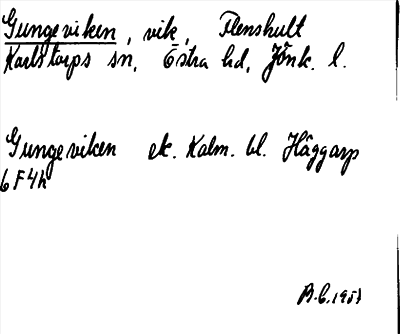 Gungeviken, vik, Flenshult
Karlstorps sn, Östra hd, Jönk. l.
Gungeviken ek. Kalm. bl. Häggarp
6 F 4h
B.C. 1951